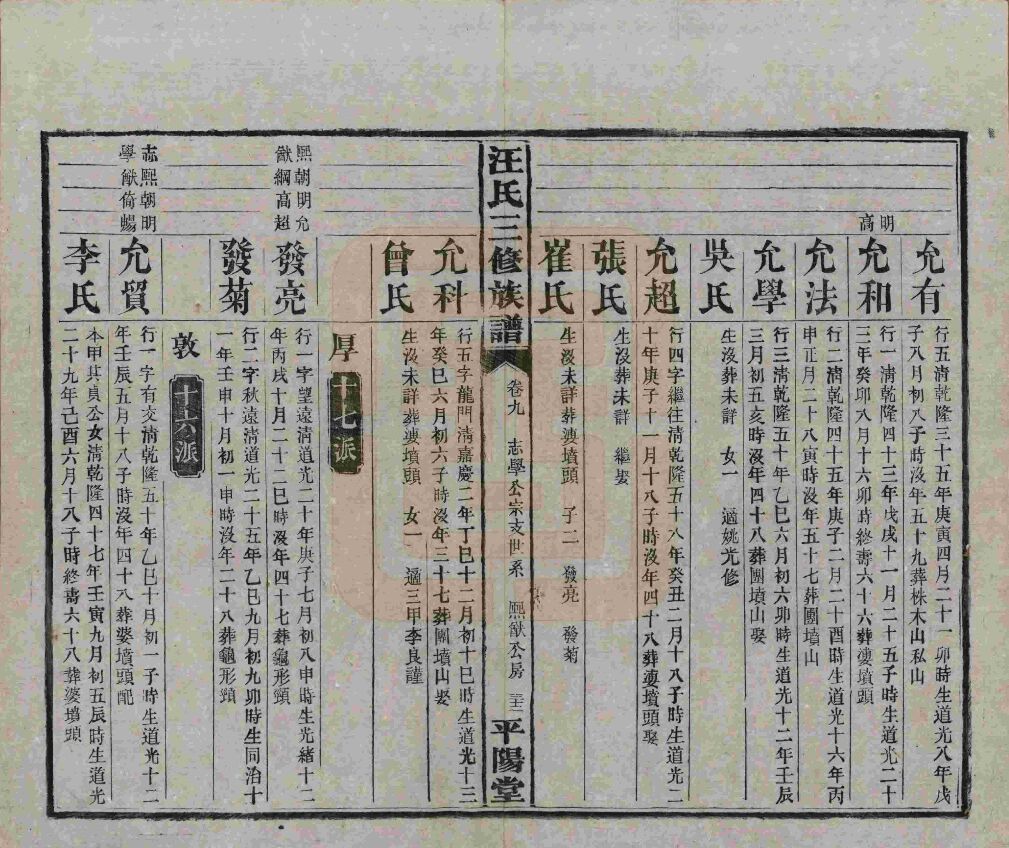 允有
行五清乾隆三十五年庚寅四月二十一卯時生道光八年戊
子八月初八子時沒年五十九葬株木山私山
明高
允和
行一清乾隆四十三年戊戌十一月二十五子時生道光二十
三年癸卯八月十六卯時終壽六十六葬婆墳頭
允法
行二清乾隆四十五年庚子二月二十酉時生道光十六年丙
申正月二十八寅時沒年五十七葬團墳山
允學
行三清乾隆五十年乙巳六月初六卯時生道光十二年壬辰
三月初五亥時沒年四十八葬團墳山娶
吳氏
生沒葬未詳 女一 適姚光修
允超
行四字繼往清乾隆五十八年癸丑二月十八子時生道光二
十年庚子十一月十八子時沒年四十八葬婆墳頭娶
張氏
生沒葬未詳 繼娶
崔氏
生沒未詳葬婆墳頭 子二 發亮 發菊
汪氏三修族譜
卷九 志學公宗支世系 熙猷公房
平陽堂
允科
行五字龍門清嘉慶二年丁巳十二月初十巳時生道光十三
年癸巳六月初六子時沒年三十七葬團墳山娶
曾氏
生沒未詳葬婆墳頭 女一 適三甲李良謹
厚 十七派
熙朝明允
猷綱高超
發亮
行一字望遠清道光二十年庚子七月初八申時生光緒十二
年丙戌十月二十二巳時沒年四十七葬龜形頸
發菊
行二字秋遠清道光二十五年乙巳九月初九卯時生同治十
一年壬申十月初一申時沒年二十八葬龜形頸
敦 十六派
志熙朝明
學猷倚暘
允貿
行一字有交清乾隆五十年乙巳十月初一子時生道光十二
年壬辰五月十八子時沒年四十八葬婆墳頭配
李氏
本甲其貞公女清乾隆四十七年壬寅九月初五辰時生道光
二十九年己酉六月十八子時終壽六十八葬婆墳頭